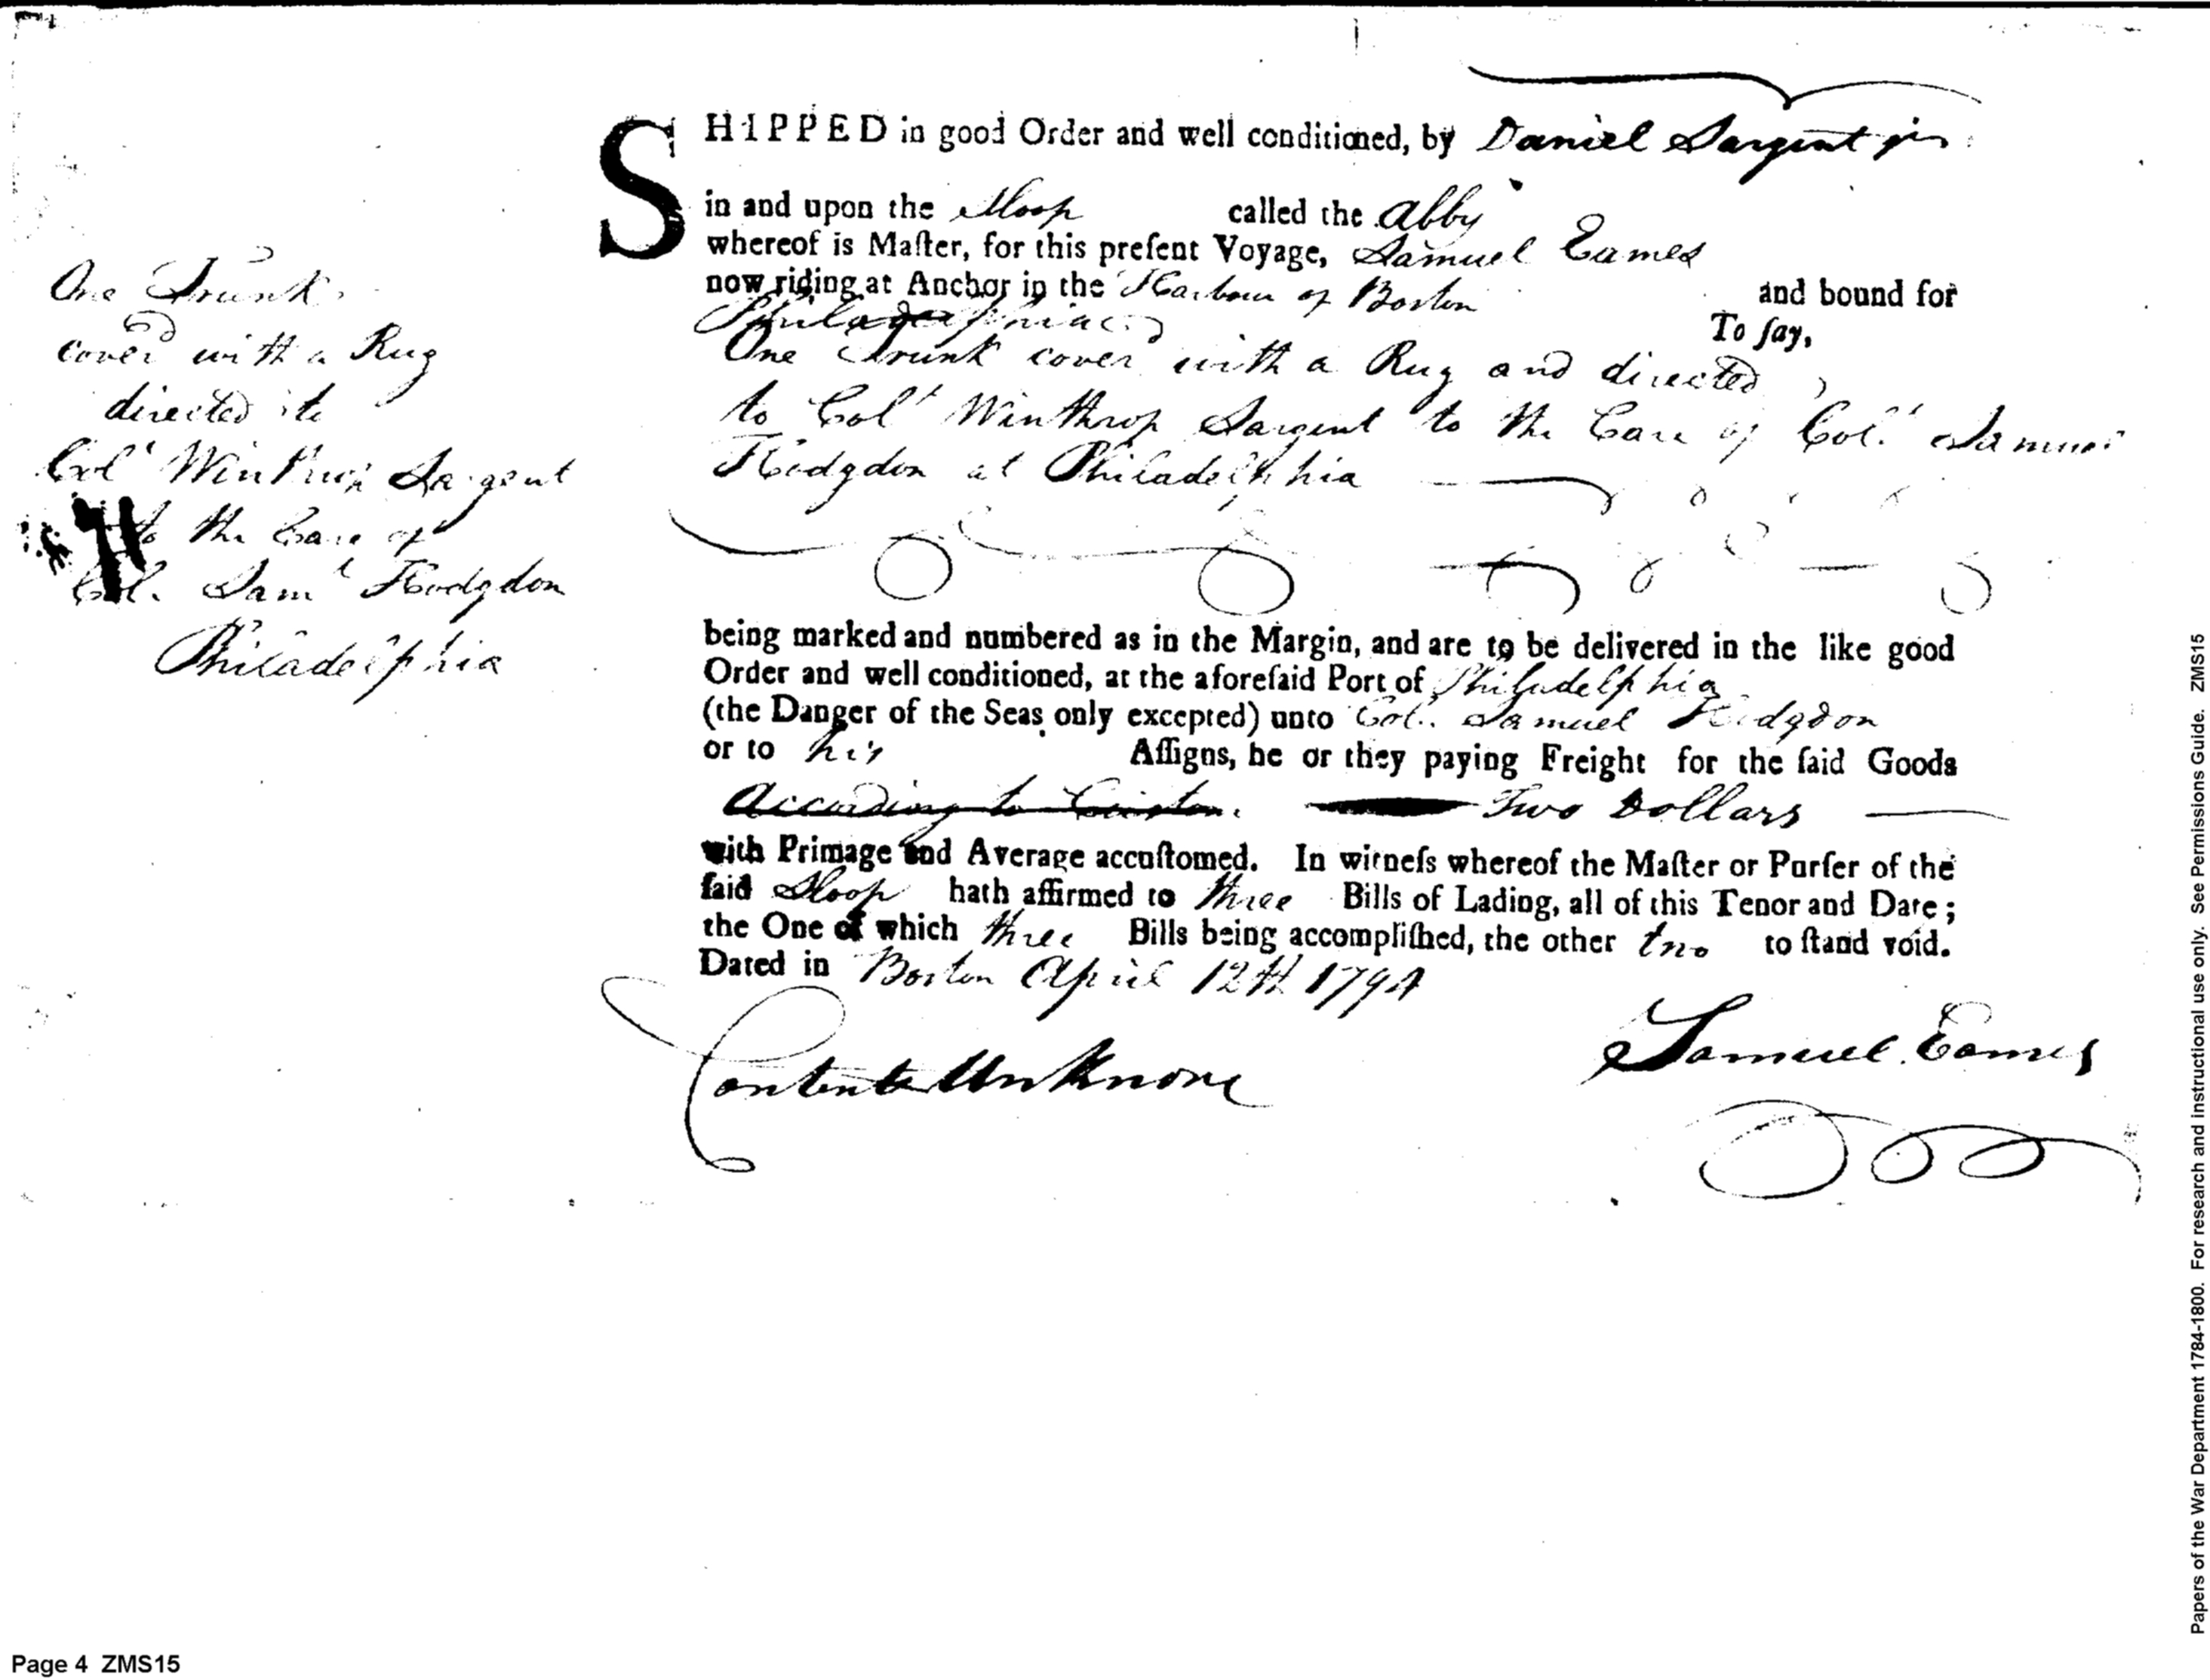 SHIPPED in good Order and well conditioned, by Daniel Sargent jr
in and upon the Sloop called the Abby
whereof is Maſter, for this preſent Voyage, Samuel Eames
now riding at Anchor in the Harbour of Boston and bound for
Philadelphia To ſay,
One Trunk cover'd with a Rug and directed
to Colˡ Winthrop Sargent to the Care of Col. Samuel
Hodgdon at Philadelphia
One Trunk
cover'd with a Rug
directed to
Colˡ Winthrop Sargent
to the Care of
Col. Samˡ Hodgdon
Philadelphia
being marked and numbered as in the Margin, and are to be delivered in the like good
Order and well conditioned, at the aforeſaid Port of Philadelphia
(the Danger of the Seas only excepted) unto Col. Samuel Hodgdon
or to his Aſſigns, he or they paying Freight for the ſaid Goods
According to Custom. Two Dollars
with Primage and Average accuſtomed. In witneſs whereof the Maſter or Purſer of the
ſaid Sloop hath affirmed to three Bills of Lading, all of this Tenor and Date;
the One of which three Bills being accompliſhed, the other two to ſtand void.
Dated in Boston April 12th 1794
Contents UnKnone
Samuel Eames
Page 4 ZMS15
Papers of the War Department 1784-1800. For research and instructional use only. See Permissions Guide. ZMS15